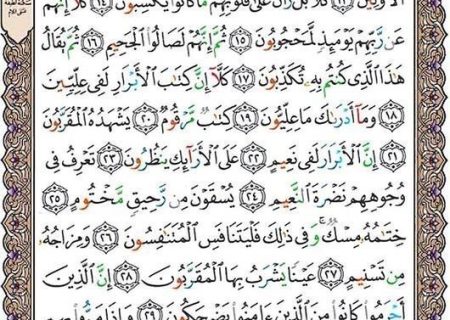 ٱلۡأَوَّلِينَ ١٣ كَلَّاۖ بَلۡۜ رَانَ عَلَىٰ قُلُوبِهِم مَّا كَانُواْ يَكۡسِبُونَ ١٤ كَلَّآ إِنَّهُمۡ
عَن رَّبِّهِمۡ يَوۡمَئِذٖ لَّمَحۡجُوبُونَ ١٥ ثُمَّ إِنَّهُمۡ لَصَالُواْ ٱلۡجَحِيمِ ١٦ ثُمَّ يُقَالُ
هَٰذَا ٱلَّذِي كُنتُم بِهِۦ تُكَذِّبُونَ ١٧ كَلَّآ إِنَّ كِتَٰبَ ٱلۡأَبۡرَارِ لَفِي عِلِّيِّينَ
١٨ وَمَآ أَدۡرَىٰكَ مَا عِلِّيُّونَ ١٩ كِتَٰبٞ مَّرۡقُومٞ ٢٠ يَشۡهَدُهُ ٱلۡمُقَرَّبُونَ
٢١ إِنَّ ٱلۡأَبۡرَارَ لَفِي نَعِيمٍ ٢٢ عَلَى ٱلۡأَرَآئِكِ يَنظُرُونَ ٢٣ تَعۡرِفُ فِي
وُجُوهِهِمۡ نَضۡرَةَ ٱلنَّعِيمِ ٢٤ يُسۡقَوۡنَ مِن رَّحِيقٖ مَّخۡتُومٍ ٢٥
خِتَٰمُهُۥ مِسۡكٞۚ وَفِي ذَٰلِكَ فَلۡيَتَنَافَسِ ٱلۡمُتَنَٰفِسُونَ ٢٦ وَمِزَاجُهُۥ
مِن تَسۡنِيمٍ ٢٧ عَيۡنٗا يَشۡرَبُ بِهَا ٱلۡمُقَرَّبُونَ ٢٨ إِنَّ ٱلَّذِينَ
أَجۡرَمُواْ كَانُواْ مِنَ ٱلَّذِينَ ءَامَنُواْ يَضۡحَكُونَ ٢٩ وَإِذَا مَرُّواْ بِهِمۡ